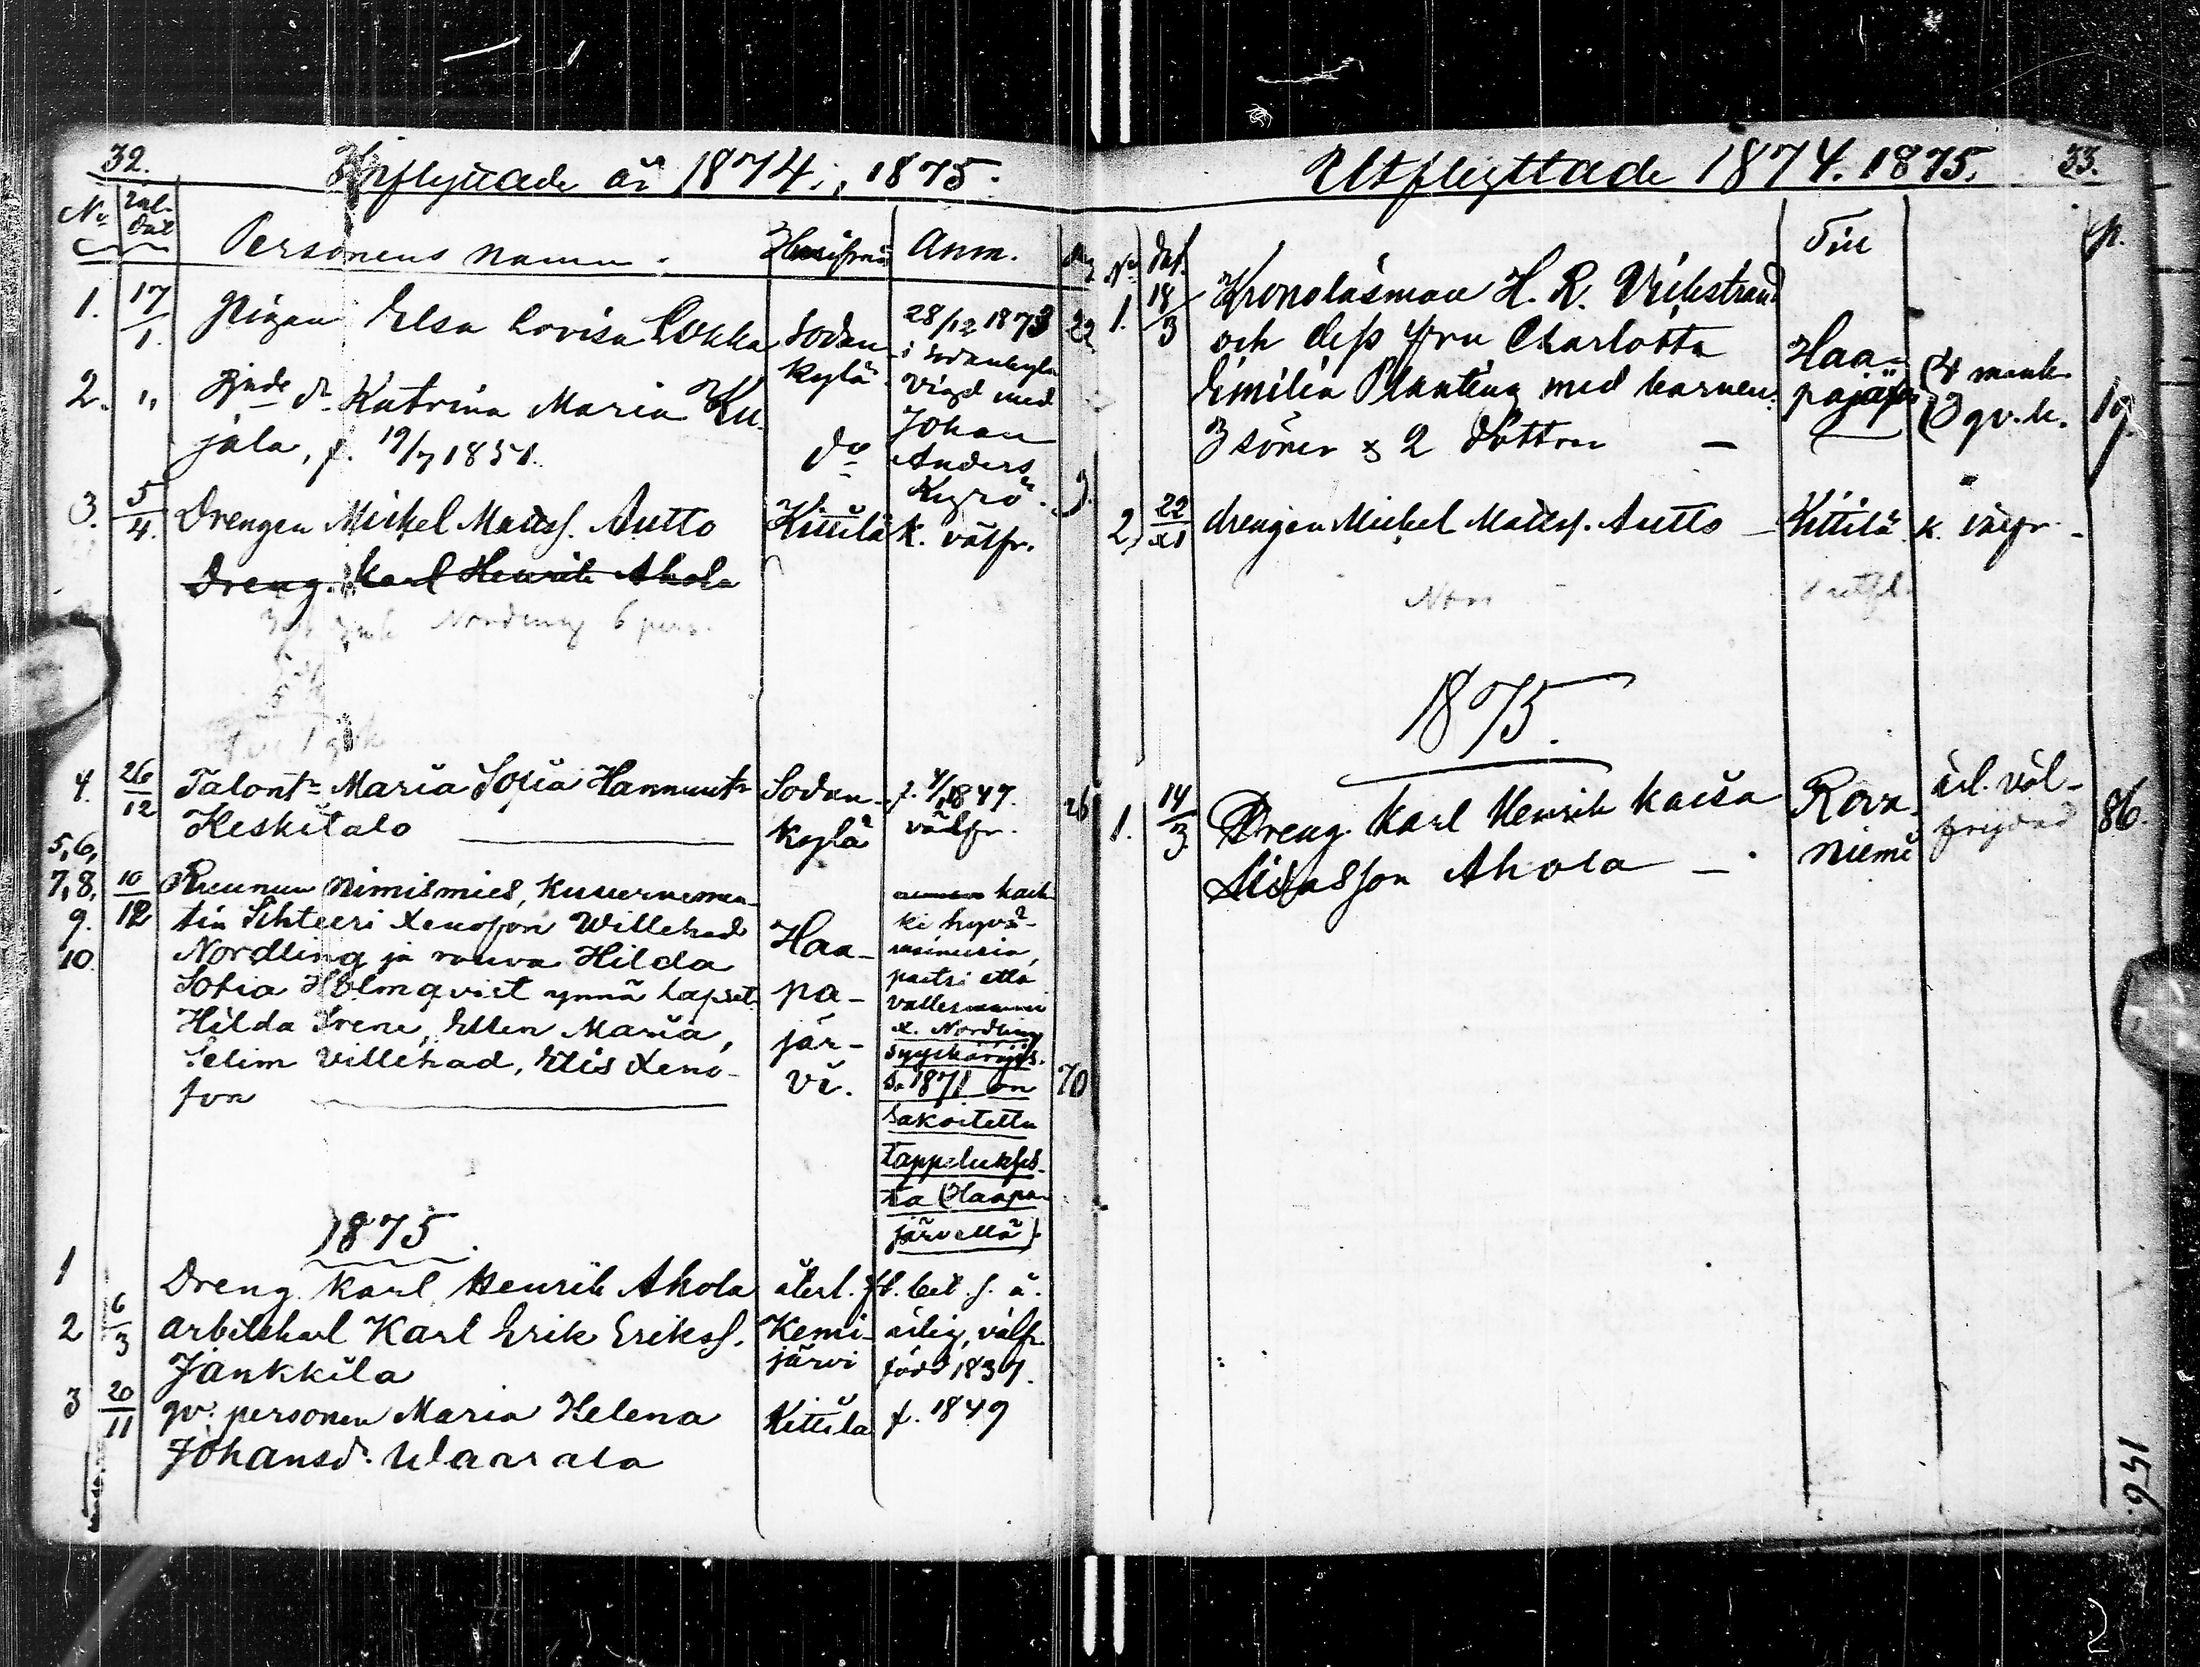 32.
Inflyttade år 1874., 1875.
No
Personens namn.
Anm.
1. 17/1. Pigan Elsa Lovisa Lokka
Sodan-
kylä
28/12 1873
i Sodankylä
vigd med
Johan
Anders
2. "
Katrina Maria Ku-
jala, f. 19/7 1851.
do
22
3. 5/4. Drengen Mickel Matss. Autto
Kittilä
k. välfr.
Dreng. Karl Henrik Ahola
Nordling 6 pers.
4. 26/12 Talontr Maria Sofia Hannuntr
Keskitalo
Sodan-
kylä
f. 1847.
välfr.
26
5, 6,
7, 8, 10/12
9.
10.
Ruunun Nimismies, Kuvernemen-
tin Sihteeri Xenofon Willehad
Nordling ja rouva Hilda
Sofia Holmqvist ynnä lapset
Hilda Irene, Ellen Maria,
Selim Villehad, Elis Xeno-
fon
Haa-
pa-
jär-
vi.
kaik-
ki hyvä-
maineisia,
paitsi että
vallesmanni
X. Nordling
syyskäräjis-
sä 1871 on
sakoitettu
tappelukses-
ta (Haapa-
järvellä).
70
1875.
1 Dreng. Karl Henrik Ahola
återl. fl. bet. s. å.
2 6/3 arbetskarl Karl Erik Erikss.
Jänkkilä
Kemi-
järvi
ärlig, välfr.
född 1837.
3 20/11 qv. personen Maria Helena
Johansd. Waarala
Kittilä
f. 1849
Utflyttade 1874. 1875. 33.
No dat. Till p.
1. 18/3 Kronolänsman H. R. Vickstrand
och dess fru Charlotta
Emilia Planting med barnen:
3 söner & 2 döttrar –
Haa-
pajärvi
(4 mank.
(3 qv. k.
19.
2) 22/XI drengen Mickel Matss. Autto –
Kittilä
k. välfr. -
1875.
1. 14/3 Dreng. Karl Henrik Kaisa
Ahola –
Rova-
niemi
ärl. väl-
frejdad
86.
156.